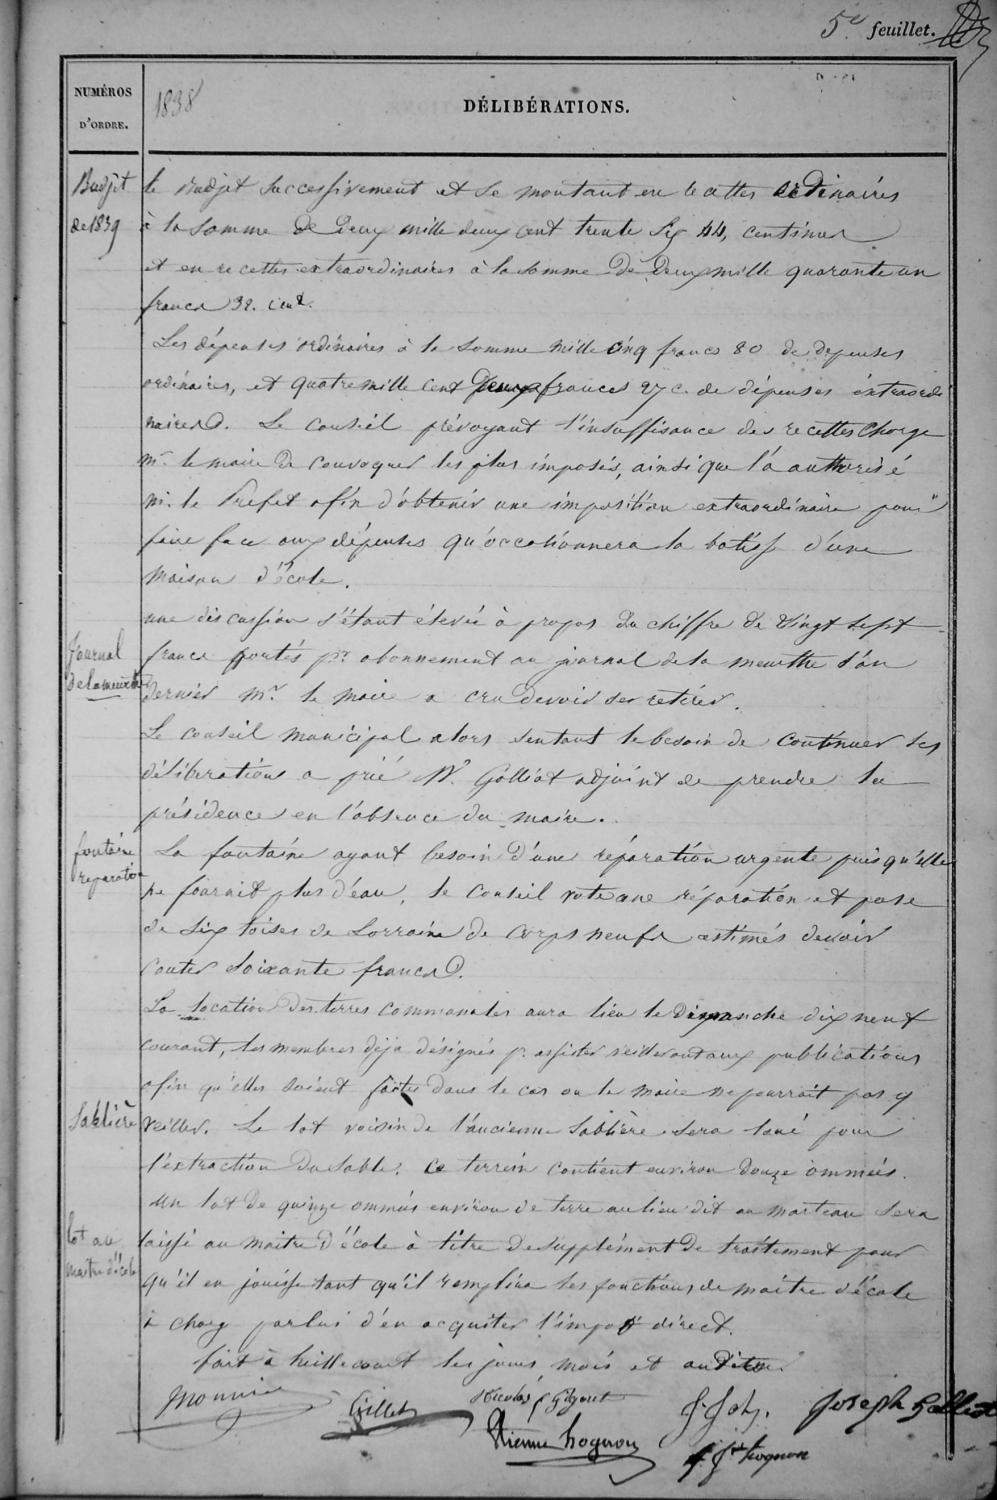 5e feuillet.
NUMÉROS
D'ORDRE.
1838
DÉLIBÉRATIONS.
Budjet
de 1839
le Budjet successivement et se montant en recettes ordinaires
à la somme de deux mille deux cent trente six 44, centimes
et en recettes extraordinaires à la somme de deux mille quarante un
francs 32. cent.
Les dépenses ordinaires à la somme mille cinq francs 80 de depenses
ordinaires, et quatre mille cent deux francs 27 c. de dépenses extraordi
naires. Le conseil prévoyant l'insuffisance des recettes charge
mr. le maire de convoquer les plus imposés, ainsi que l'a authorisé
m. le Prefet afin d'obtenir une imposition extraordinaire pour
faire face aux dépenses qu'occationnera la batisse d'une
maison d'école.
Journal
de la meurthe
une discussion s'étant élevée à propos du chiffre de vingt sept
francs portés pr. abonnement au journal de la meurthe l'an
dernier mr. le maire a cru devoir se retirer.
Le conseil municipal alors sentant le besoin de continuer ses
délibérations a prié Mr. Golliot adjoint de prendre la
présidence en l'absence du maire.
fontaine
reparation
La fontaine ayant besoin d'une réparation urgente puisqu'elle
ne fournit plus d'eau, le conseil vote une réparation et pose
de six toises de Lorraine de corps neufs estimés devoir
couter soixante francs.
La location des terres communales aura lieu le dimanche dix neuf
courant, les membres déja désignés p. assister veilleront aux publications
afin qu'elles soient faites dans le cas ou le maire ne pourrait pas y
Sablière
veiller. Le lot voisin de l'ancienne sablière sera loué pour
l'extraction du sable. ce terrein contient environ douze ommées.
lot au
maitre d'école
un lot de quinze ommées environ de terre au lieu dit au marteau sera
laissé au maitre d'école à titre de supplément de traitement pour
qu'il en jouisse tant qu'il remplira les fonctions de maitre d'école
à charg par lui d'en acquiter l'impot direct.
fait à heillecourt les jours mois et an
Gillet
Nicolas
Joseph Golliot
Etienne hognon
hognon